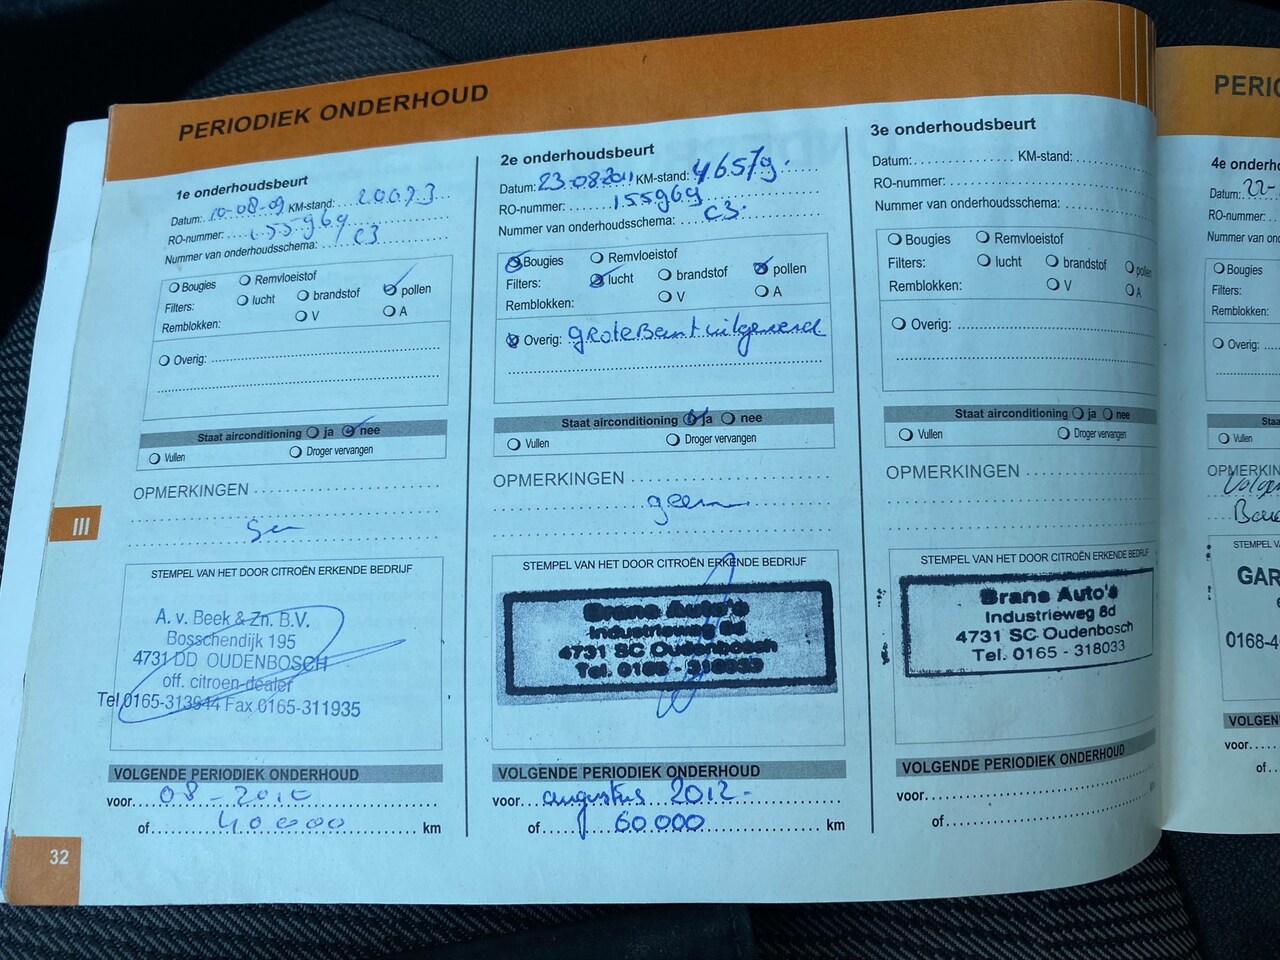 PERIODIEK ONDERHOUD
1e onderhoudsbeurt
Datum: 10-08-09 KM-stand: 20073
RO-nummer: 155969
Nummer van onderhoudsschema: C3
Bougies Remvloeistof
Filters: lucht brandstof pollen
Remblokken: V A
Overig:
Staat airconditioning ja nee
Vullen Droger vervangen
OPMERKINGEN
STEMPEL VAN HET DOOR CITROËN ERKENDE BEDRIJF
A. v. Beek & Zn. B.V.
Bosschendijk 195
4731 DD OUDENBOSCH
off. citroen-dealer
Tel 0165-313944 Fax 0165-311935
VOLGENDE PERIODIEK ONDERHOUD
voor 08-2010
of 40000 km
32
III
2e onderhoudsbeurt
Datum: 23.08.2011 KM-stand: 46579.
RO-nummer: 155969
Nummer van onderhoudsschema: C3.
Bougies Remvloeistof
Filters: lucht brandstof pollen
Remblokken: V A
Overig: grote Beurt uitgevoerd
Staat airconditioning ja nee
Vullen Droger vervangen
OPMERKINGEN
geen
STEMPEL VAN HET DOOR CITROËN ERKENDE BEDRIJF
Brans Auto's
Industrieweg 8d
4731 SC Oudenbosch
Tel. 0165 - 318033
VOLGENDE PERIODIEK ONDERHOUD
voor augustus 2012.
of 60.000 km
3e onderhoudsbeurt
Datum: KM-stand:
RO-nummer:
Nummer van onderhoudsschema:
Bougies Remvloeistof
Filters: lucht brandstof pollen
Remblokken: V A
Overig:
Staat airconditioning ja nee
Vullen Droger vervangen
OPMERKINGEN
STEMPEL VAN HET DOOR CITROËN ERKENDE BEDRIJF
Brans Auto's
Industrieweg 8d
4731 SC Oudenbosch
Tel. 0165 - 318033
VOLGENDE PERIODIEK ONDERHOUD
voor
of
PERIO
4e onderh
Datum: 22-
RO-nummer:
Nummer van ond
Bougies
Filters:
Remblokken:
Overig:
Staa
Vullen
OPMERKIN
STEMPEL V
GAR
0168-4
VOLGEN
voor
of